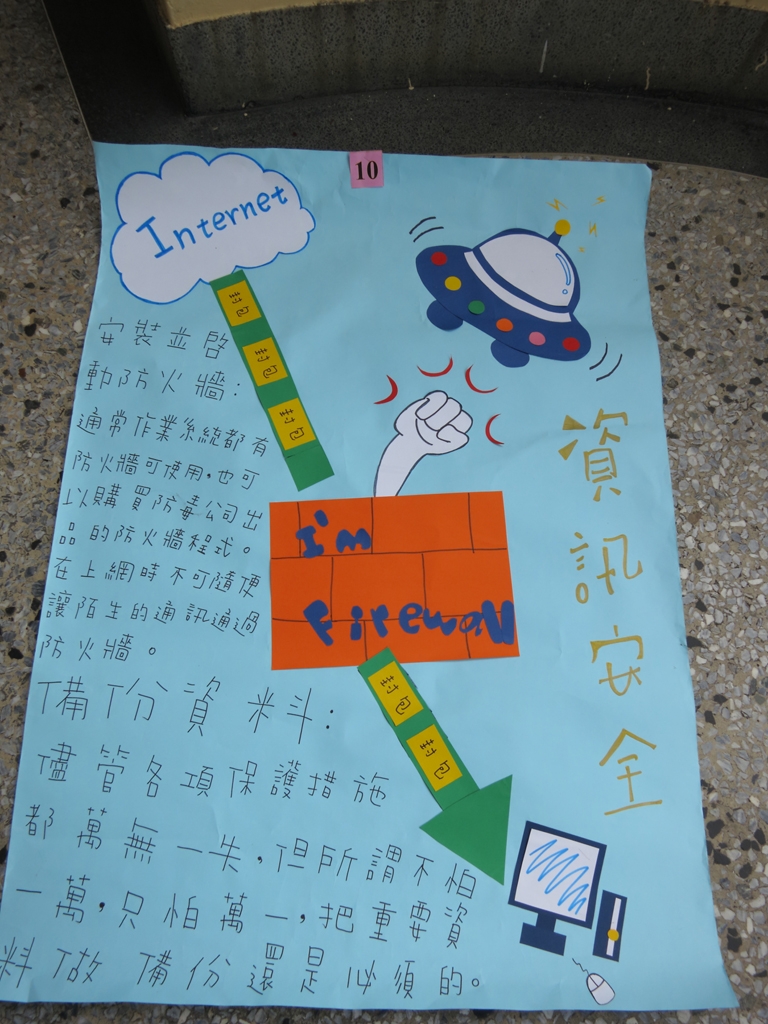 10
Internet
封包
封包
封包
安裝並啓
動防火牆:
通常作業系統都有
防火牆可使用,也可
以購買防毒公司出
品的防火牆程式。
在上網時不可隨便
讓陌生的通訊通過
防火牆。
I'm
Firewall
封包
封包
資訊安全
備份資料:
儘管各項保護措施
都萬無一失,但所謂不怕
一萬,只怕萬一,把重要資
料做備份還是必須的。